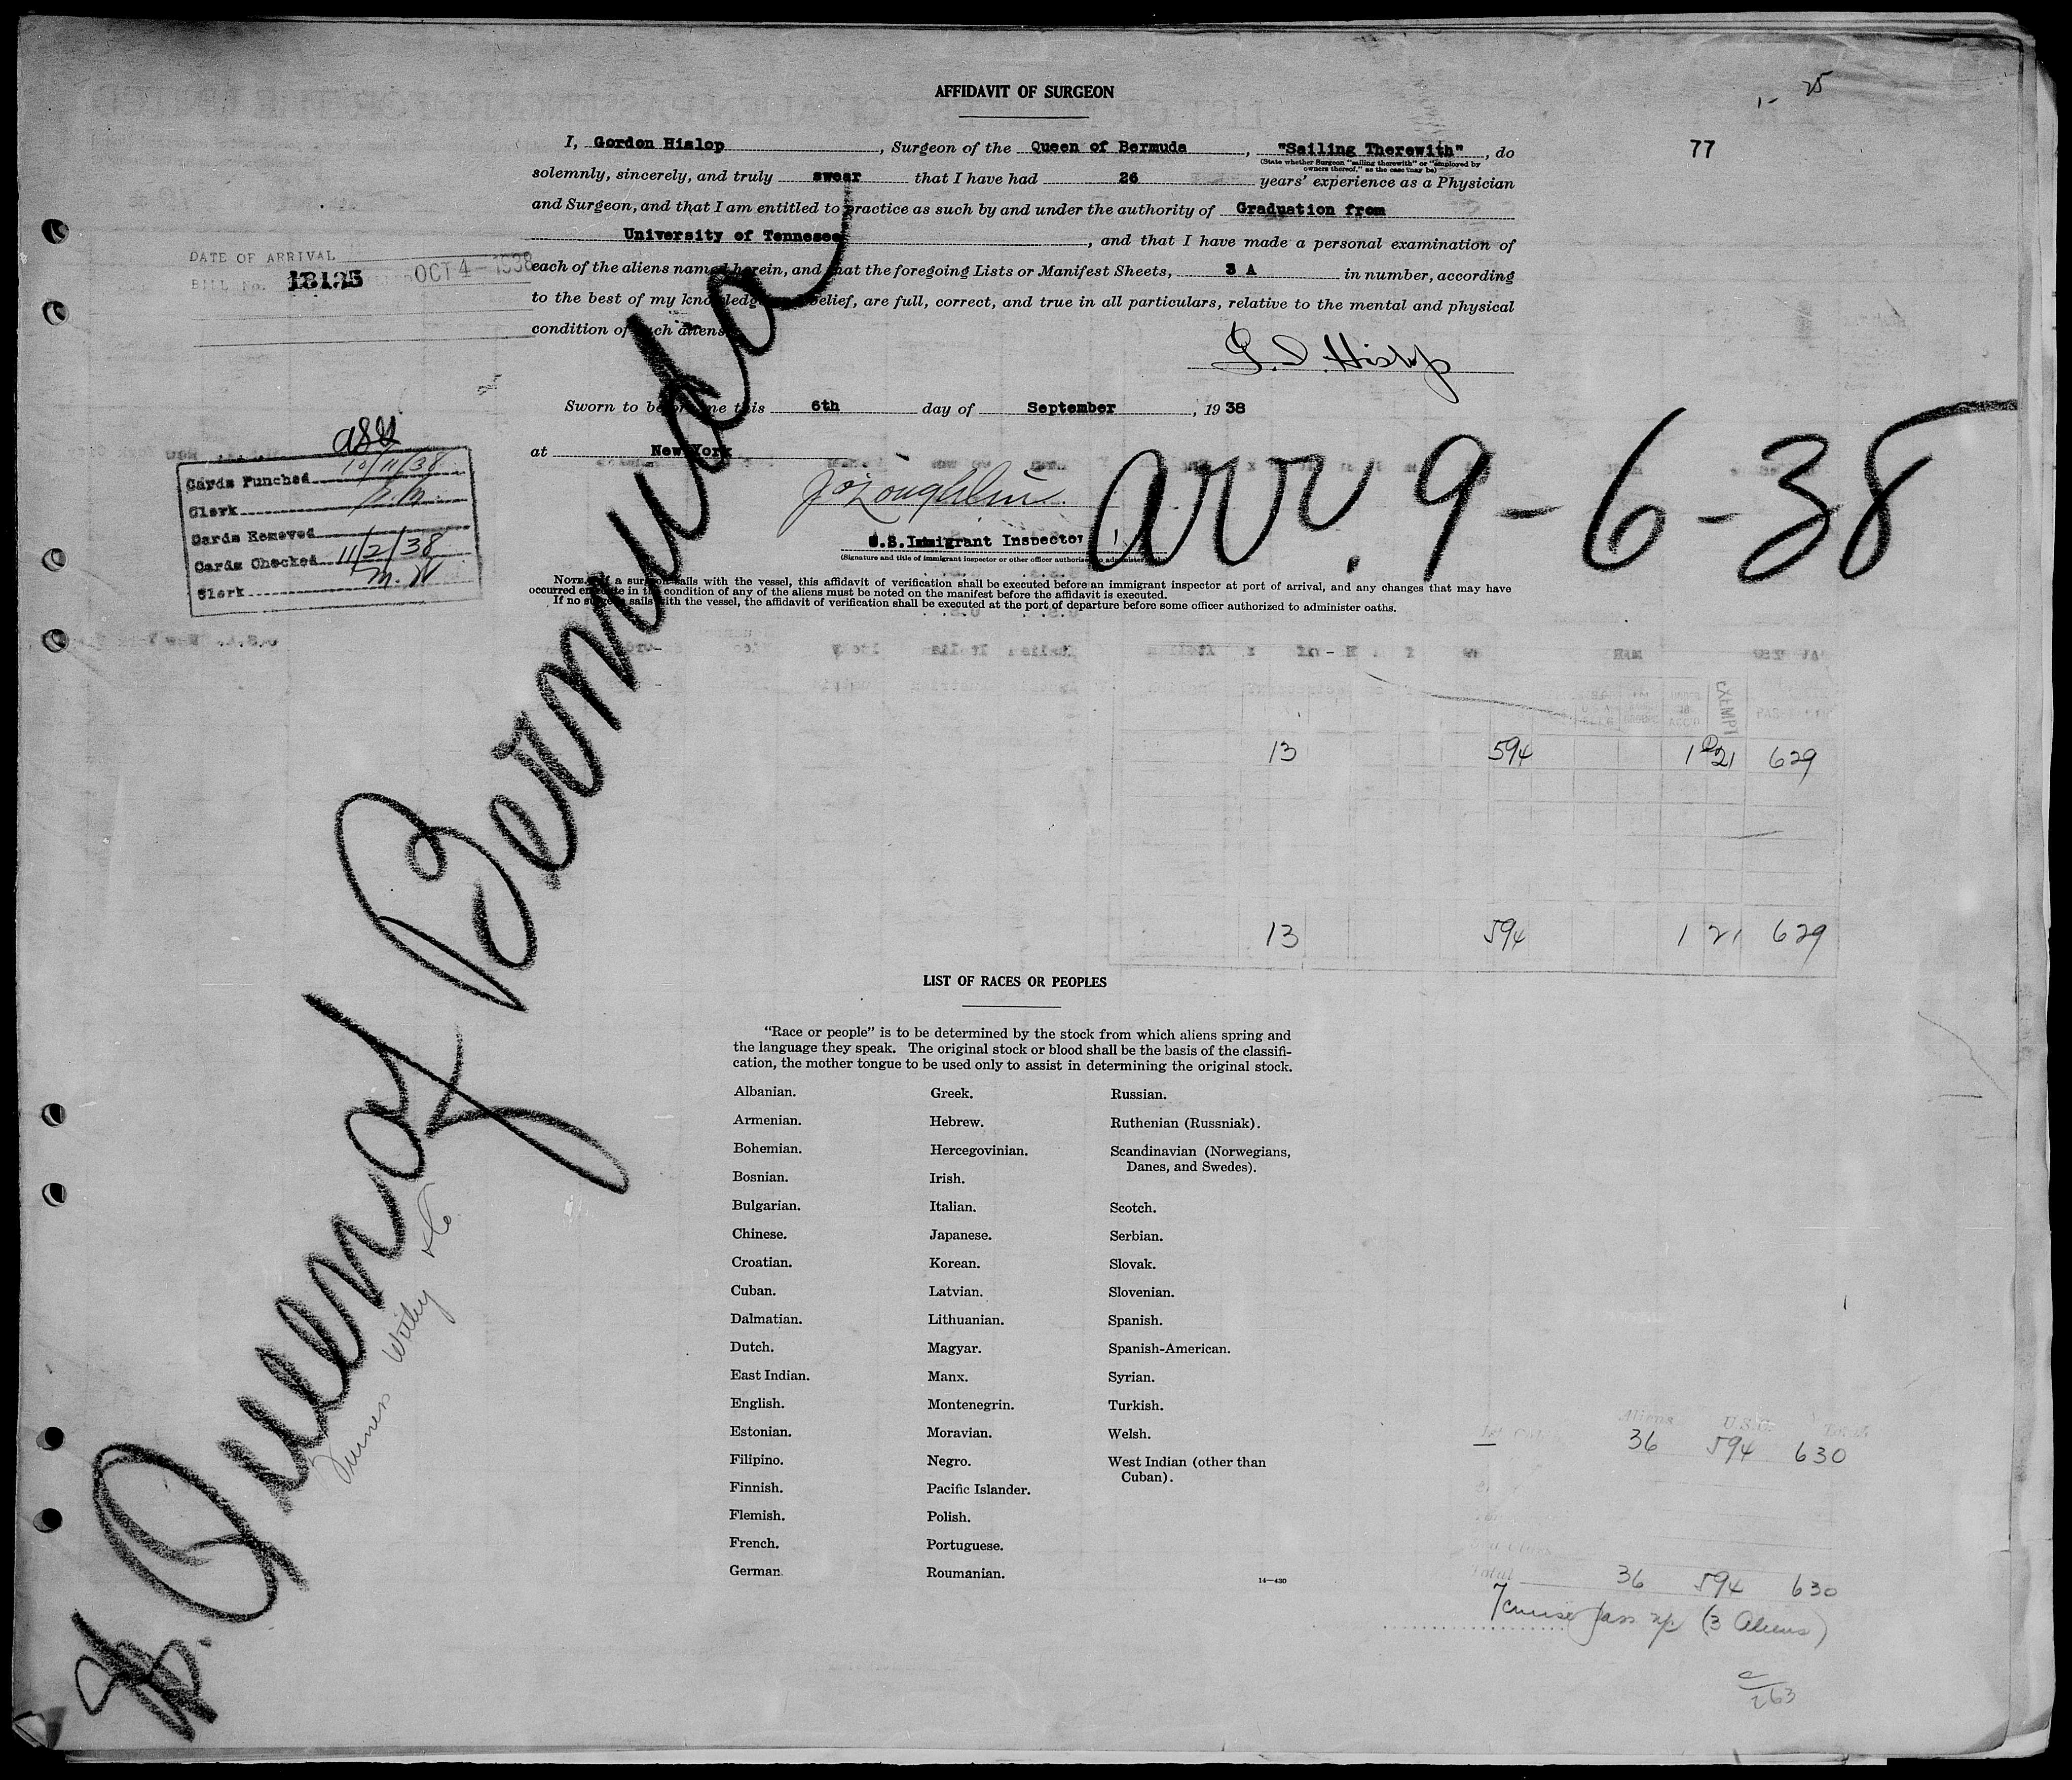 AFFIDAVIT OF SURGEON
1- 25
77
I, Gordon Hislop, Surgeon of the Queen of Bermuda, "Sailing Therewith", do
(State whether Surgeon "sailing therewith" or "employed by owners thereof," as the case may be)
solemnly, sincerely, and truly swear that I have had 26 years' experience as a Physician
and Surgeon, and that I am entitled to practice as such by and under the authority of Graduation from
University of Tennesee, and that I have made a personal examination of
each of the aliens named herein, and that the foregoing Lists or Manifest Sheets, 3 A in number, according
to the best of my knowledge and belief, are full, correct, and true in all particulars, relative to the mental and physical
condition of such aliens.
DATE OF ARRIVAL
BILL No. 18125 OCT 4-1938
Hislop
Sworn to before me this 6th day of September, 1938
at New York
J O'Loughlin
U.S.Immigrant Inspector
(Signature and title of immigrant inspector or other officer authorized to administer
arr. 9-6-38
Cards Punched 10/11/38
Clerk
Cards Removed
Cards Checked 11/2/38
Clerk M. W
NOTE.—If a surgeon sails with the vessel, this affidavit of verification shall be executed before an immigrant inspector at port of arrival, and any changes that may have
occurred en route in the condition of any of the aliens must be noted on the manifest before the affidavit is executed.
If no surgeon sails with the vessel, the affidavit of verification shall be executed at the port of departure before some officer authorized to administer oaths.
Queen of Bermuda
Furness Withy & Co
EXEMPT
13 594 1 21 629
13 594 1 21 629
LIST OF RACES OR PEOPLES
"Race or people" is to be determined by the stock from which aliens spring and
the language they speak. The original stock or blood shall be the basis of the classifi-
cation, the mother tongue to be used only to assist in determining the original stock.
Albanian.
Armenian.
Bohemian.
Bosnian.
Bulgarian.
Chinese.
Croatian.
Cuban.
Dalmatian.
Dutch.
East Indian.
English.
Estonian.
Filipino.
Finnish.
Flemish.
French.
German.
Greek.
Hebrew.
Hercegovinian.
Irish.
Italian.
Japanese.
Korean.
Latvian.
Lithuanian.
Magyar.
Manx.
Montenegrin.
Moravian.
Negro.
Pacific Islander.
Polish.
Portuguese.
Roumanian.
Russian.
Ruthenian (Russniak).
Scandinavian (Norwegians,
Danes, and Swedes).
Scotch.
Serbian.
Slovak.
Slovenian.
Spanish.
Spanish-American.
Syrian.
Turkish.
Welsh.
West Indian (other than
Cuban).
14—430
Aliens U.S.C. Total
36 594 630
Total 36 594 630
7 cruise pass (3 Aliens)
263